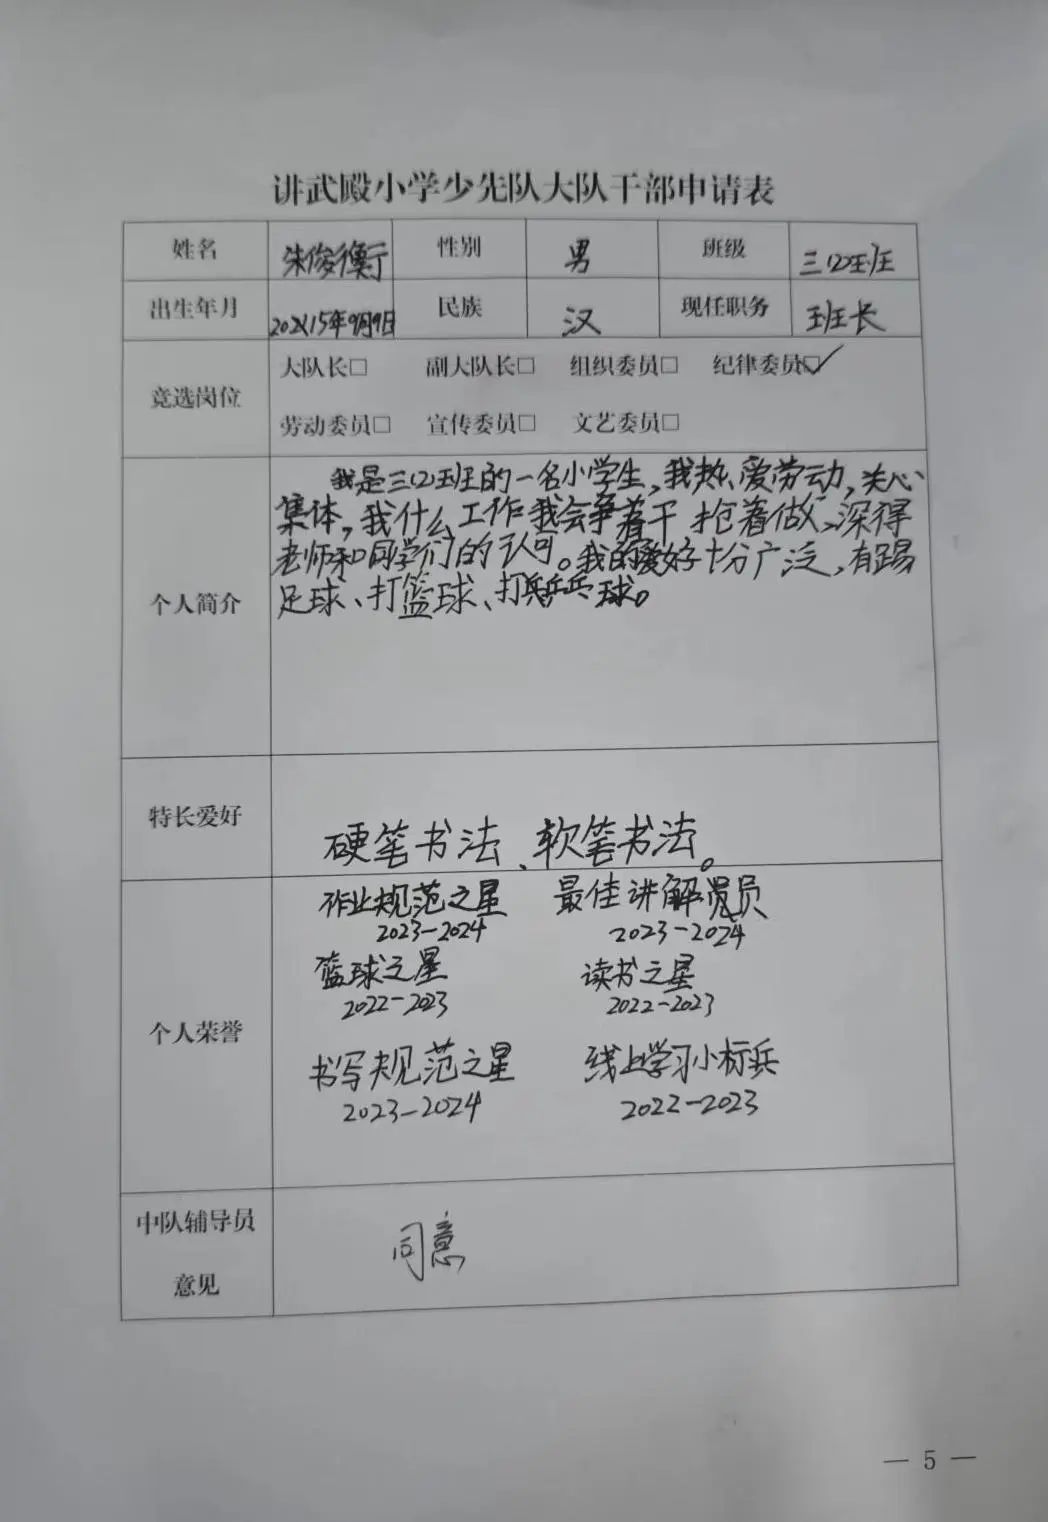 讲武殿小学少先队大队干部申请表
姓名 朱俊衡 性别 男 班级 三(2)班
出生年月 2015年9月9日 民族 汉 现任职务 班长
竞选岗位
大队长□ 副大队长□ 组织委员□ 纪律委员☑
劳动委员□ 宣传委员□ 文艺委员□
个人简介
我是三(2)班的一名小学生,我热爱劳动,关心
集体,我什么工作我会争着干 抢着做、深得
老师和同学们的认可。我的爱好十分广泛,有踢
足球、打篮球、打乒乓球。
特长爱好
硬笔书法、软笔书法。
个人荣誉
作业规范之星 最佳讲解员
2023-2024 2023-2024
篮球之星 读书之星
2022-2023 2022-2023
书写规范之星 线上学习小标兵
2023-2024 2022-2023
中队辅导员
意见
同意
— 5 —